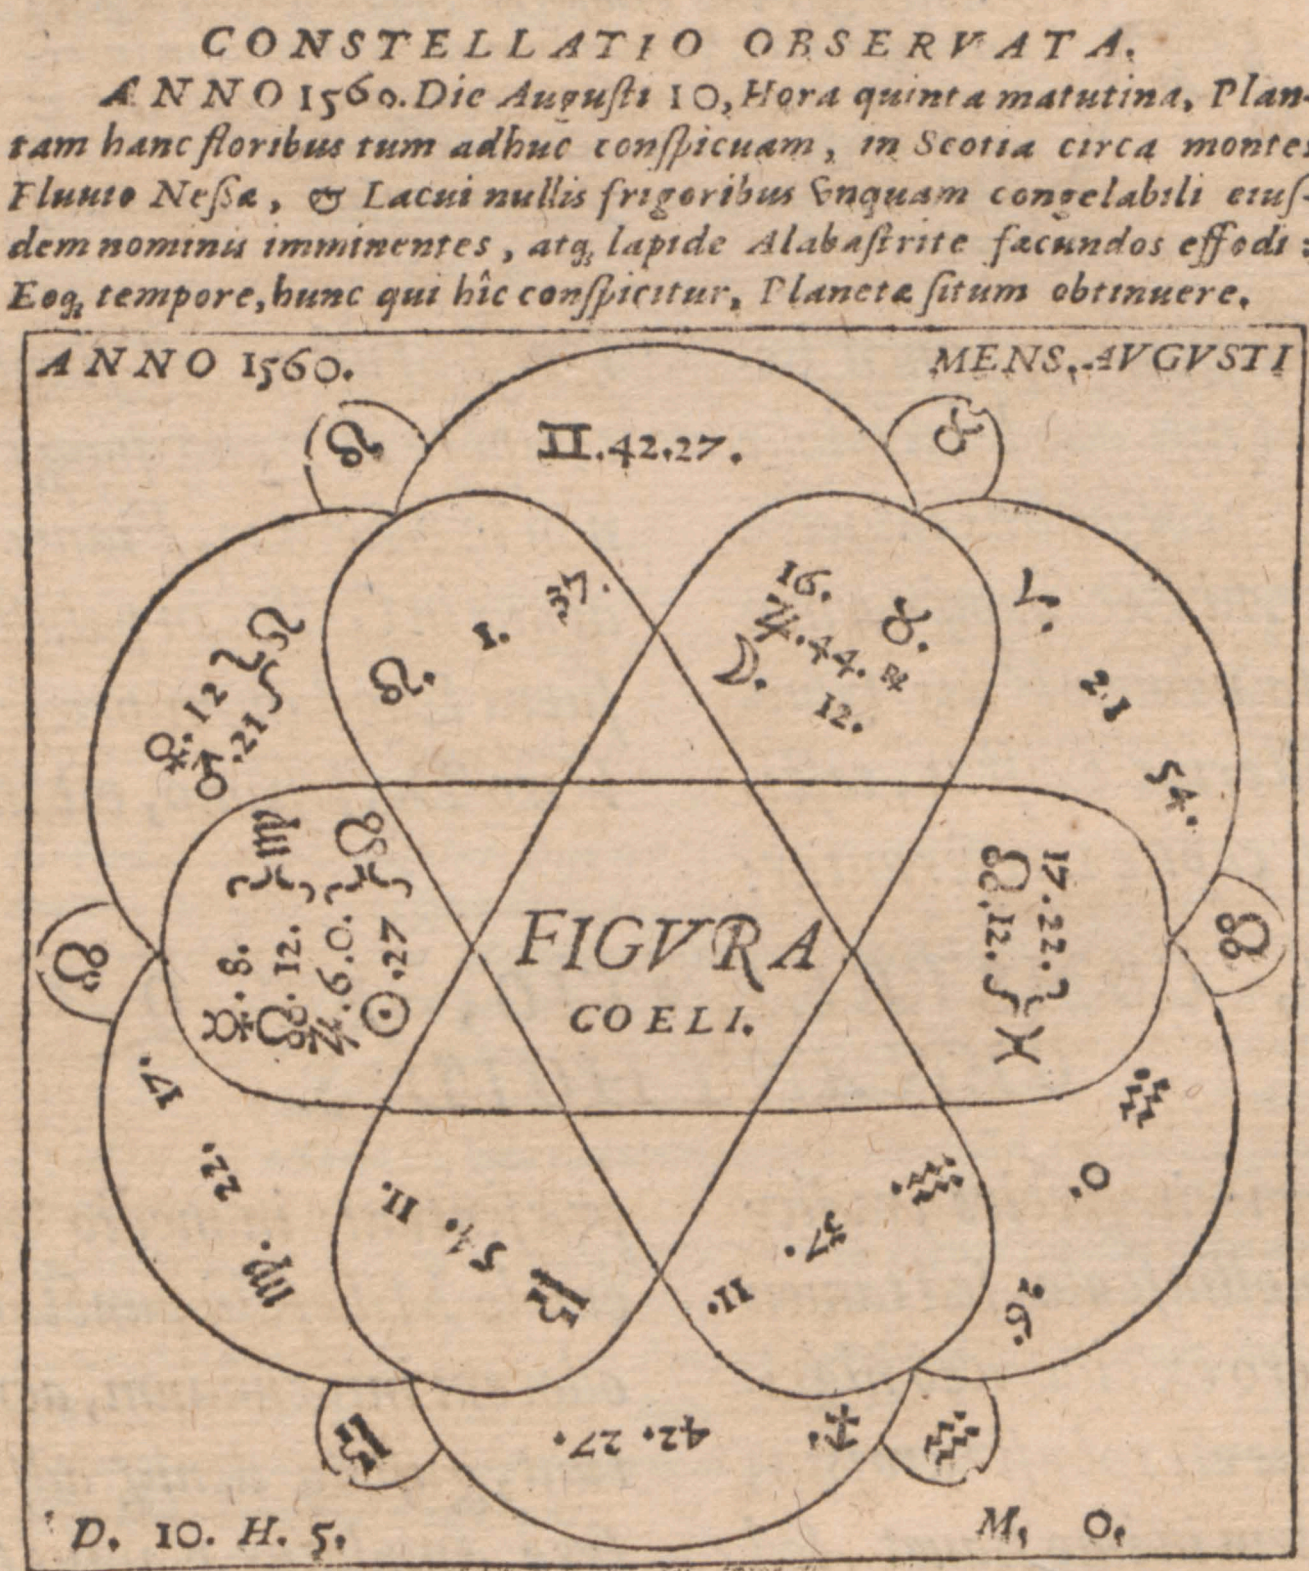 CONSTELLATIO OBSERVATA.
ÆNNO 1560. Die Augusti 10, Hora quinta matutina, Plan-
tam hanc floribus tum adhuc conſpicuam, in Scotia circa montes
Fluuio Neſſæ, & Lacui nullis frigoribus vnquam congelabili eiuſ-
dem nominis imminentes, atq; lapide Alabaſtrite fæcundos effodi:
Eoq; tempore, hunc qui hîc conſpicitur, Planetæ ſitum obtinuere.
ANNO 1560.
MENS. AVGVSTI
☊
♉
♊.42.27.
♌ ♀.12
♂.21
♌. 1. 37.
16. ♉.
♃.44.
☽. 12.
♈. 21 54.
♍ ☿.8.
12.
6.0.
☉.27
FIGVRA
COELI.
17.22.
☊.12. ♓
17. 22. ♍.
11. 54.
♒. 37. 11.
♒ 0. 26.
♐. 42.27.
♒
D. 10. H. 5.
M. 0.